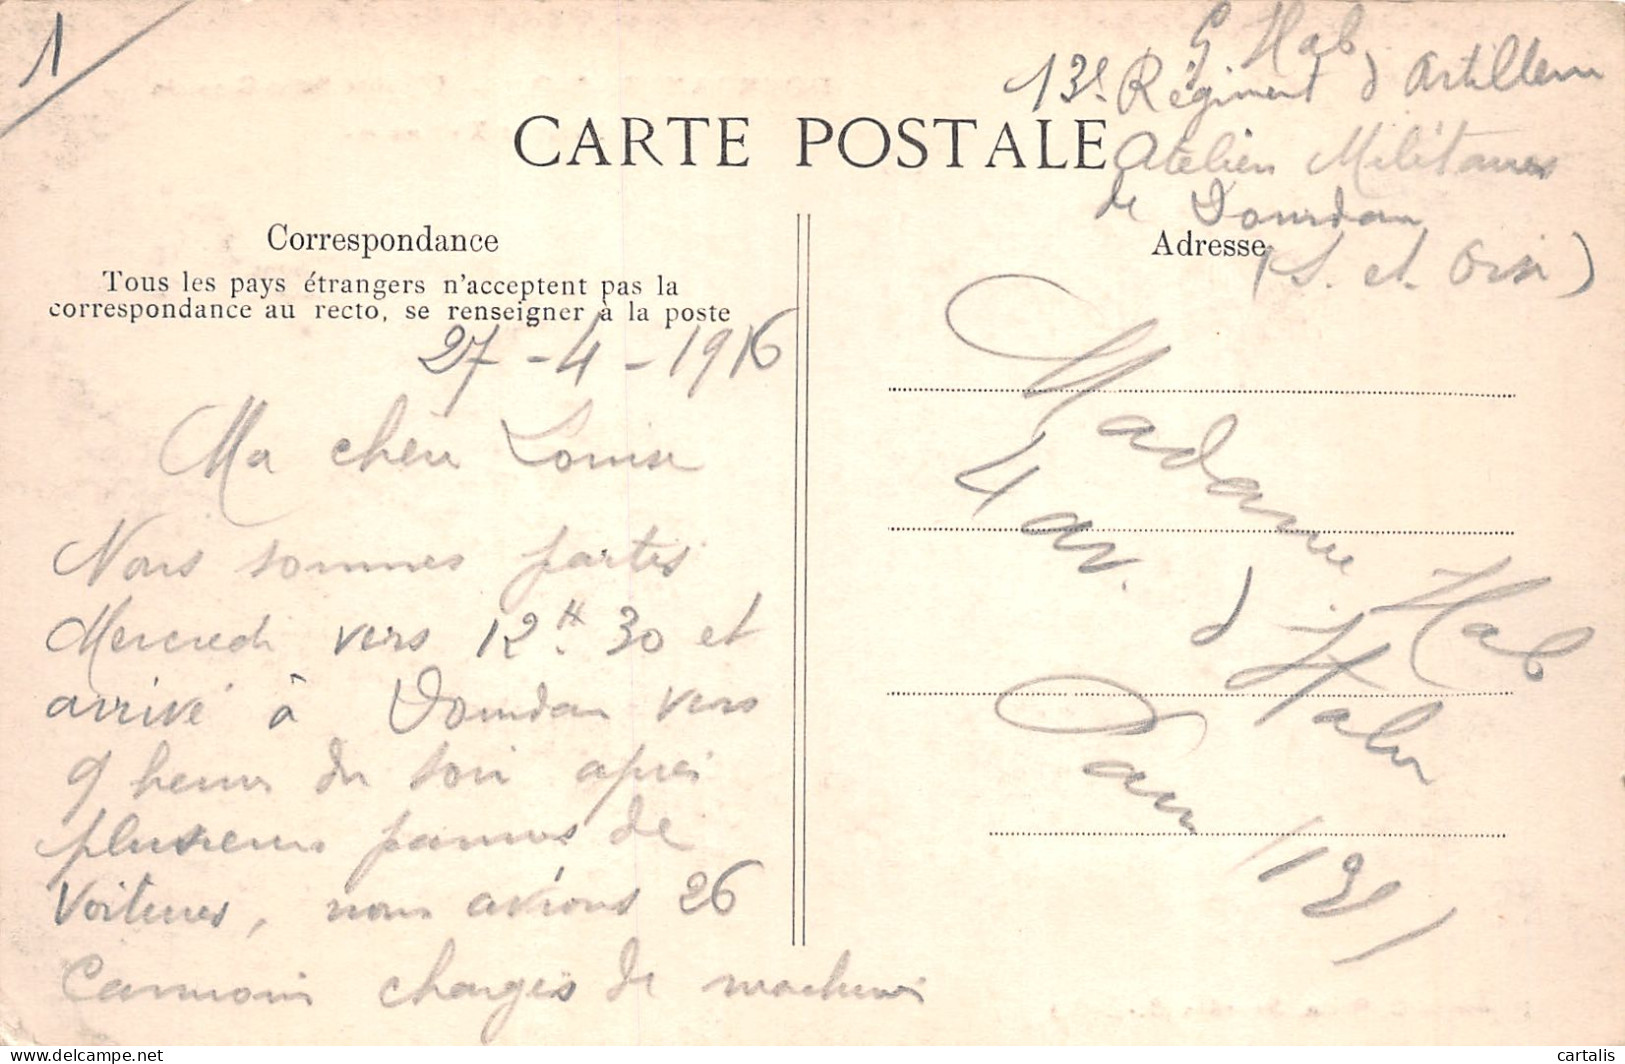 1
G Hab
13e Régiment d Artillerie
CARTE POSTALE
Atelier Militaires
de Dourdan
(S. et Oise)
Correspondance
Tous les pays étrangers n'acceptent pas la
correspondance au recto, se renseigner à la poste
27-4-1916
Ma chère Louise
Nous sommes partis
Mercredi vers 12H.30 et
arrivé à Dourdan vers
9 heures du soir après
plusieurs pannes de
Voitures, nous avions 26
Cammion chargés de machines
Adresse
Madame Hab
4 av. d'Italie
Paris (13e)
delcampe.net
cartalis